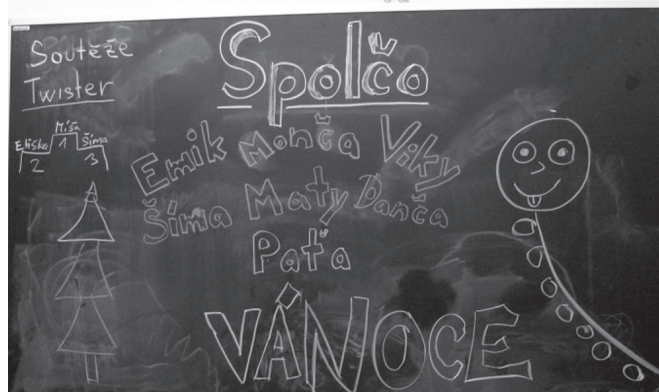 Soutěže
Twister
Míša
Eliška 1 Šíma
2 3
Spolčo
Emik Monča Viky
Šíma Maty Danča
Paťa
VÁNOCE